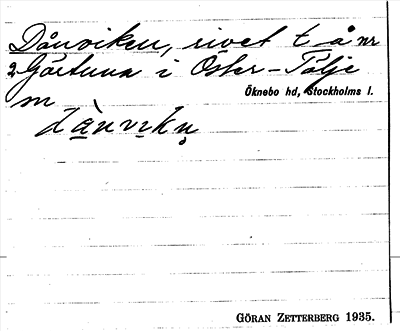 Dånviken, rivet t å nr
2 Gärtuna i Öster-Tälje
sn
Öknebo hd, Stockholms l.
dànvıkn̥
GÖRAN ZETTERBERG 1935.